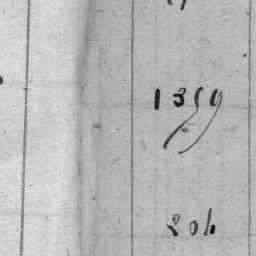 1359
204